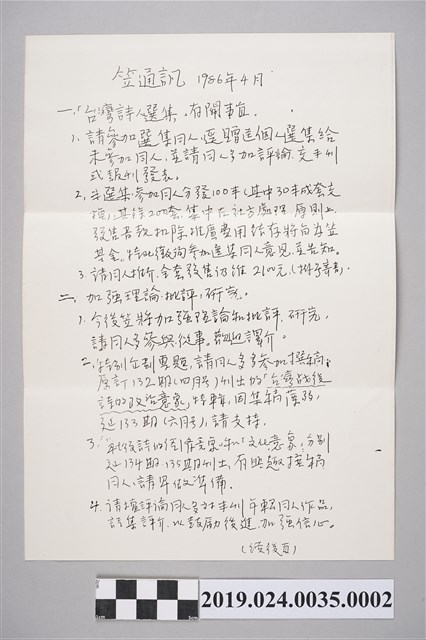 笠通訊 1986年4月
一、「台灣詩人選集」有關事宜.
1. 請參加選集同人,逕贈送個人選集給
未參加同人,並請同人多加評論,交本刊
或報刊發表。
2. 本選集參加同人分發100本(其中30本成套交
換),其餘200套,集中在社方處理,原則上
發售吾親扣除推廣費用結存將向為笠
基金,特此徵詢參加選集同人意見並告知。
3. 請同人推介,全套發售價維2100元(掛號寄書)
二、加強理論、批評、研究。
1. 今後笠將加強理論和批評、研究,
請同人多參與從事,歡迎譯介。
2. 特別企劃專題,請同人多多參加撰稿,
原訂132期(四月號)刊出的「台灣戰後
詩的政治意象」特輯,因集稿厚弱,
延133期(六月號),請支持.
3. 戰後詩的
「文化意象」分別
延134期、135期刊出,有興趣撰稿
同人,請早做準備.
4. 請撰評論同人多對本刊年輕同人作品,
詩集評介,以鼓勵後進,加強信心。
(續後頁)
2019.024.0035.0002